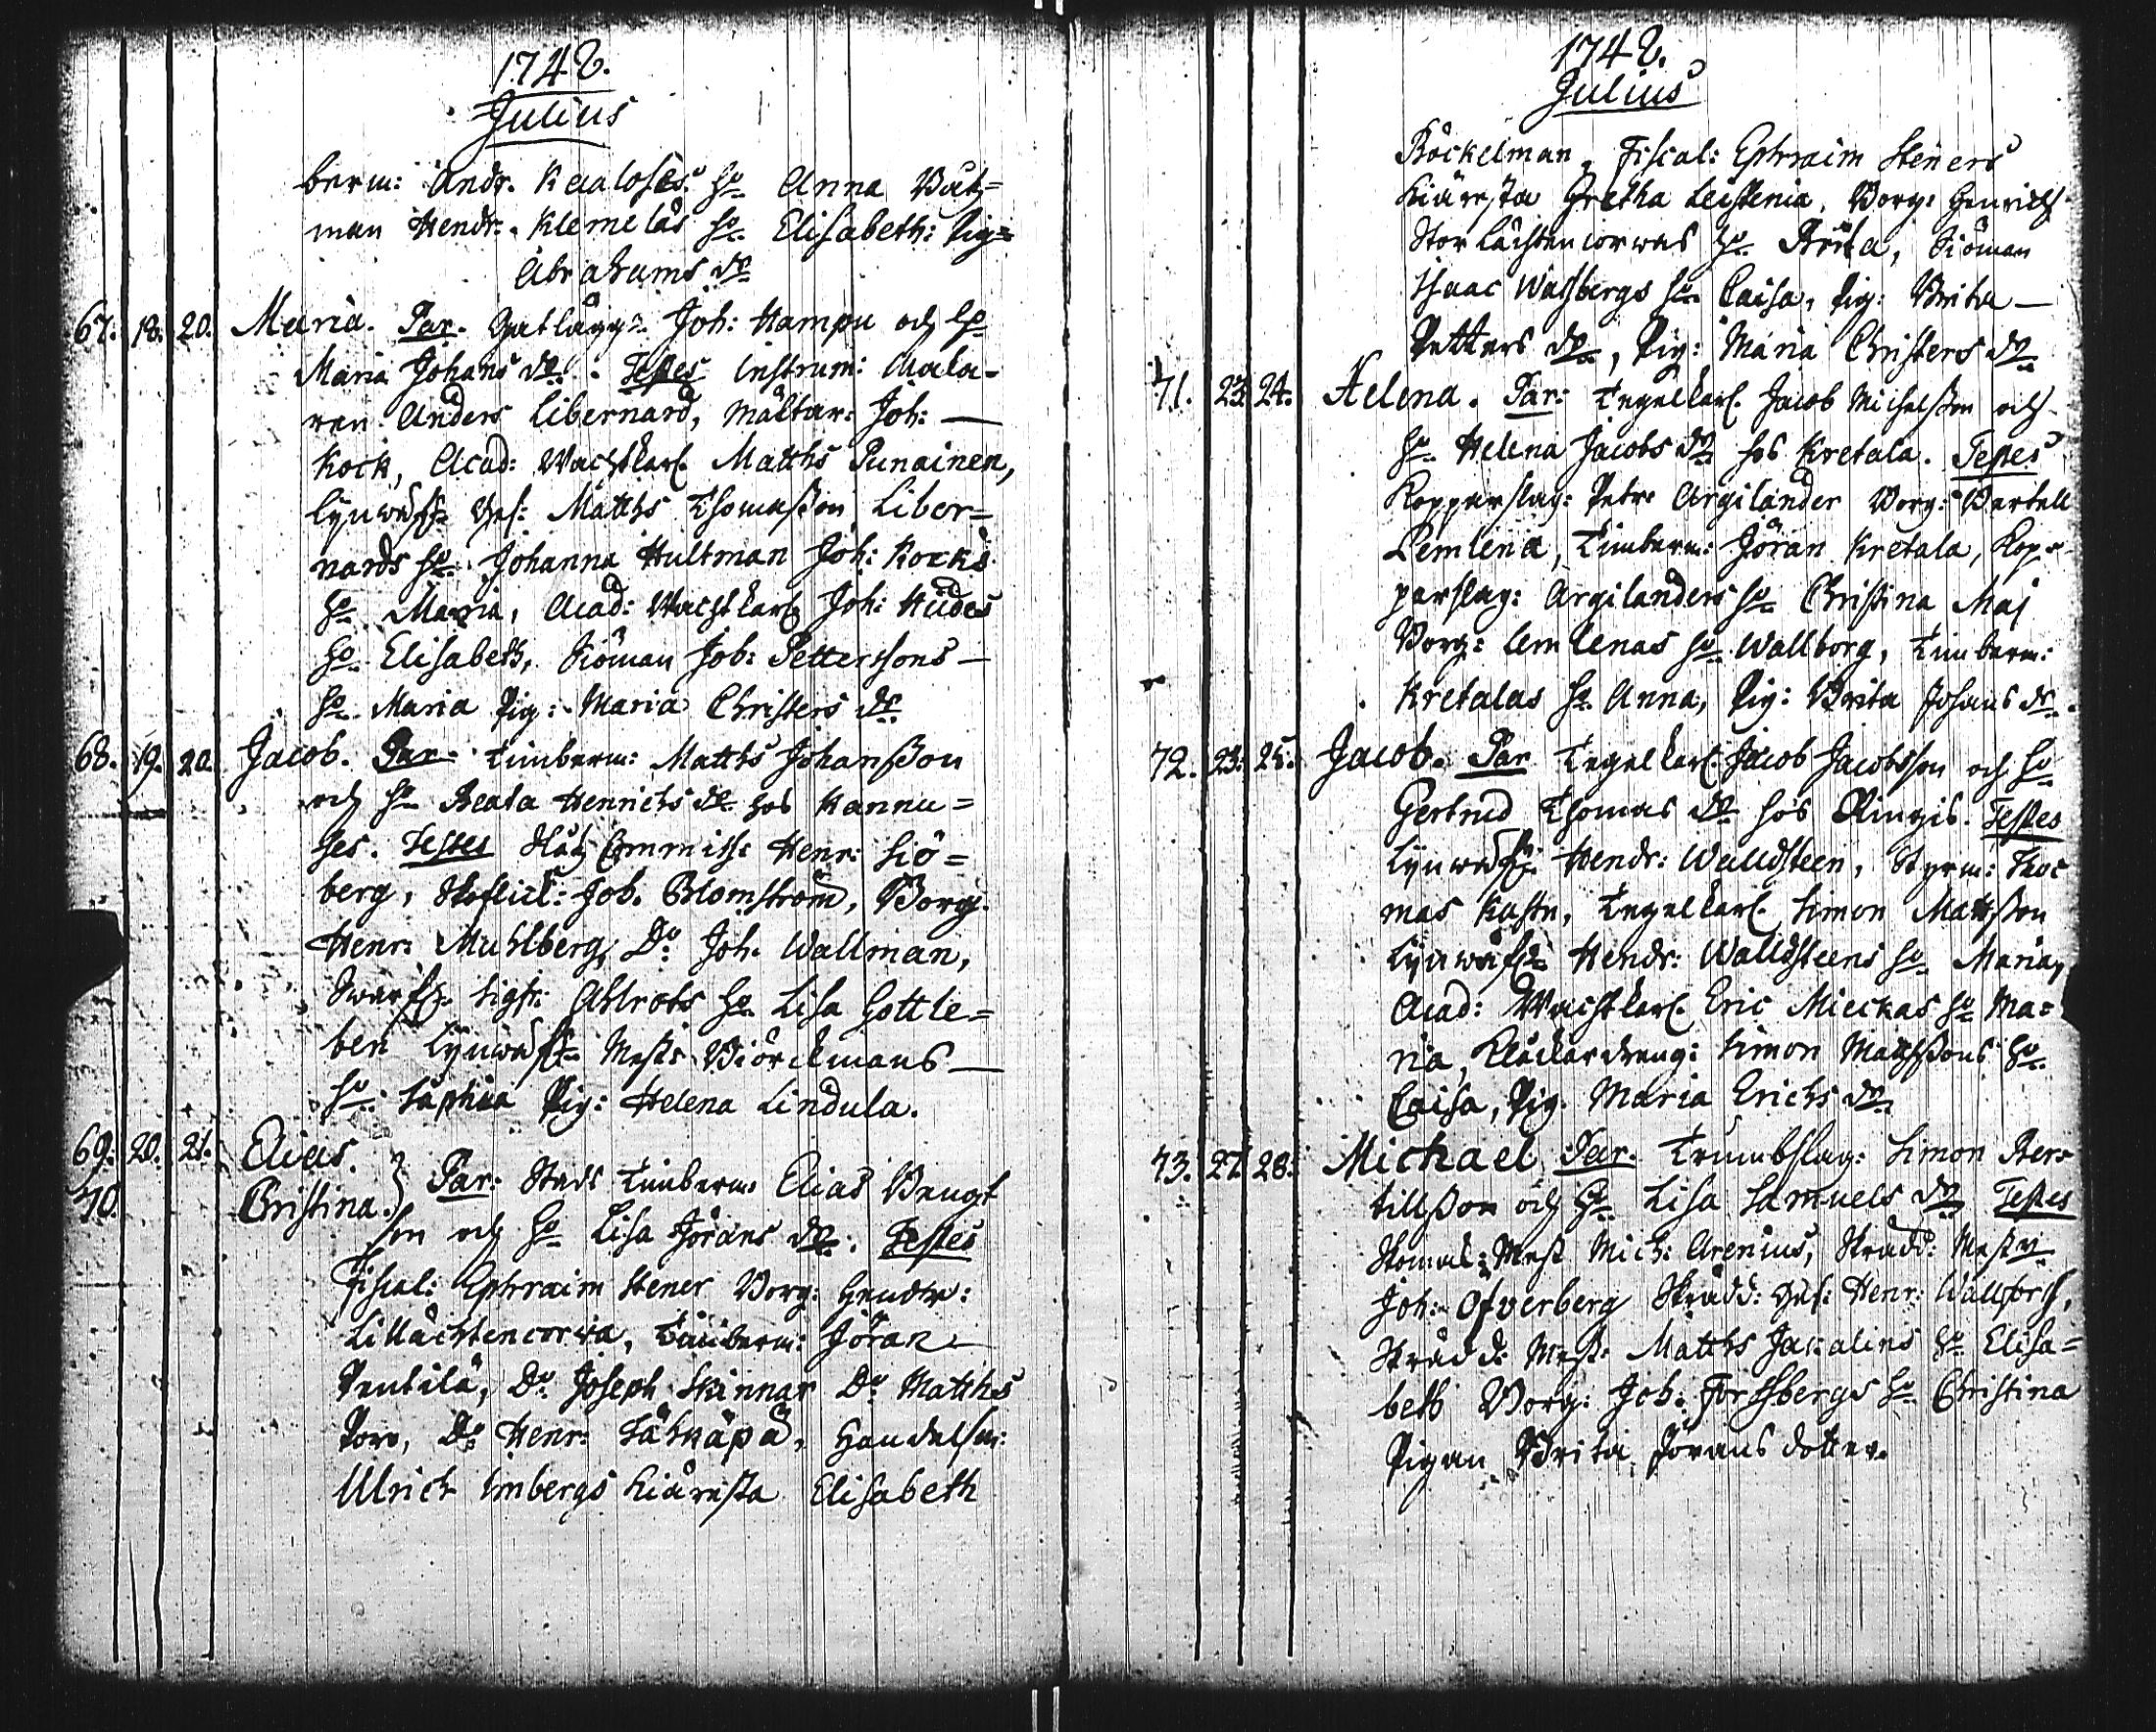 1748.
Julius
berm: Andr. Kaaloses: ho Anna Båtz=
man Hendr. Klemelas ho Elisabeth: Pig=
Abrahams do
67. 18. 20. Maria. Par. Gatlägg: Joh: Hampu och ho
Maria Johans do. Testes Instrum: Maka-
ren Anders Libernard, Mältar: Joh: —
Kock, Acad: Wachtkarl Matths Punainen,
Lynwäf: Ges: Matths Thomasson Liber=
nards ho Johanna Hultman Joh: Kocks
ho Maria, Acad: Wachtkarl Joh: Hudes
ho Elisabeth, Siöman Joh: Petterssons —
ho Maria Pig: Maria Christers do
68. 19. 20. Jacob. Par. Timberm: Matths Johansson
och ho Beata Henrichs do hos Kannu=
ses. Testes Commiss: Henr: Siö=
berg, Joh. Blomström, Borg.
Henr: Muhlberg, Do Joh. Wallman,
Swarf: Sigfr: Ahlrots ho Lisa Gottle=
ben Lynwäf Mest: Biörckmans —
ho Saphia Pig: Helena Lindula.
69. 20. 21. Elias.
70. Christina. } Par: Stads Timberm: Elias Bengt
son och ho Lisa Jörans do. Testes
Fiscal: Ephraim Stener Borg: Hendr:
Lillächtencorwa, Timberm: Jöran
Pentilä, Do Joseph Skinnar Do Matths
Poro, Do Henr: Säkäpä, Handelsm:
Ulrich Imbergs Kiäresta Elisabeth
1748.
Julius
Böckelman, Fiscal: Ephraim Steners
Kiäresta Gretha Leistenia, Borg: Henrich
Storlächtencorwas ho Brita, Siöman
Isaac Wassbergs ho Caisa, Pig: Brita —
Petters do, Pig: Maria Christers do
71. 23. 24. Helena. Par: Tegelkarl Jacob Michelsson och
ho Helena Jacobs do hos Kretala. Testes
Kopparslag: Petr: Argilander Borg: Bertell
Lemlena, Timberm: Jöran Kretala, Kop-
parslag: Argilanders ho Christina Maj
Borg: Lemlenas ho Wallborg, Timberm:
Kretalas ho Anna, Pig: Brita Johans do.
72. 23. 25. Jacob. Par Tegelkarl Jacob Jacobsson och ho
Gertrud Thomas do hos Ringis. Testes
Lynwäf: Hendr: Walldsteen, Styrm: Tho=
mas Kaste, Tegelkarl Simon Mattsson
Lynwäf: Hendr: Walldsteens ho Maria,
Acad: Wachtkarl Eric Mieckas ho Ma=
ria, Klåckardreng: Simon Mattssons ho
Caisa, Pig. Maria Erichs do
73. 27. 28. Michael Par. Trumbslag: Simon Ber=
tillsson och ho Lisa Samuels do Testes
Skomak: Mest Mich: Arenius, Skradd: Mestr
Joh: Ofverberg Skradd: Ges: Henr: Wallfors,
Skradd: Mest: Matths Jakalins ho Elisa=
beth Borg: Joh: Forssbergs ho Christina
Pigan Brita Jörans dotter.